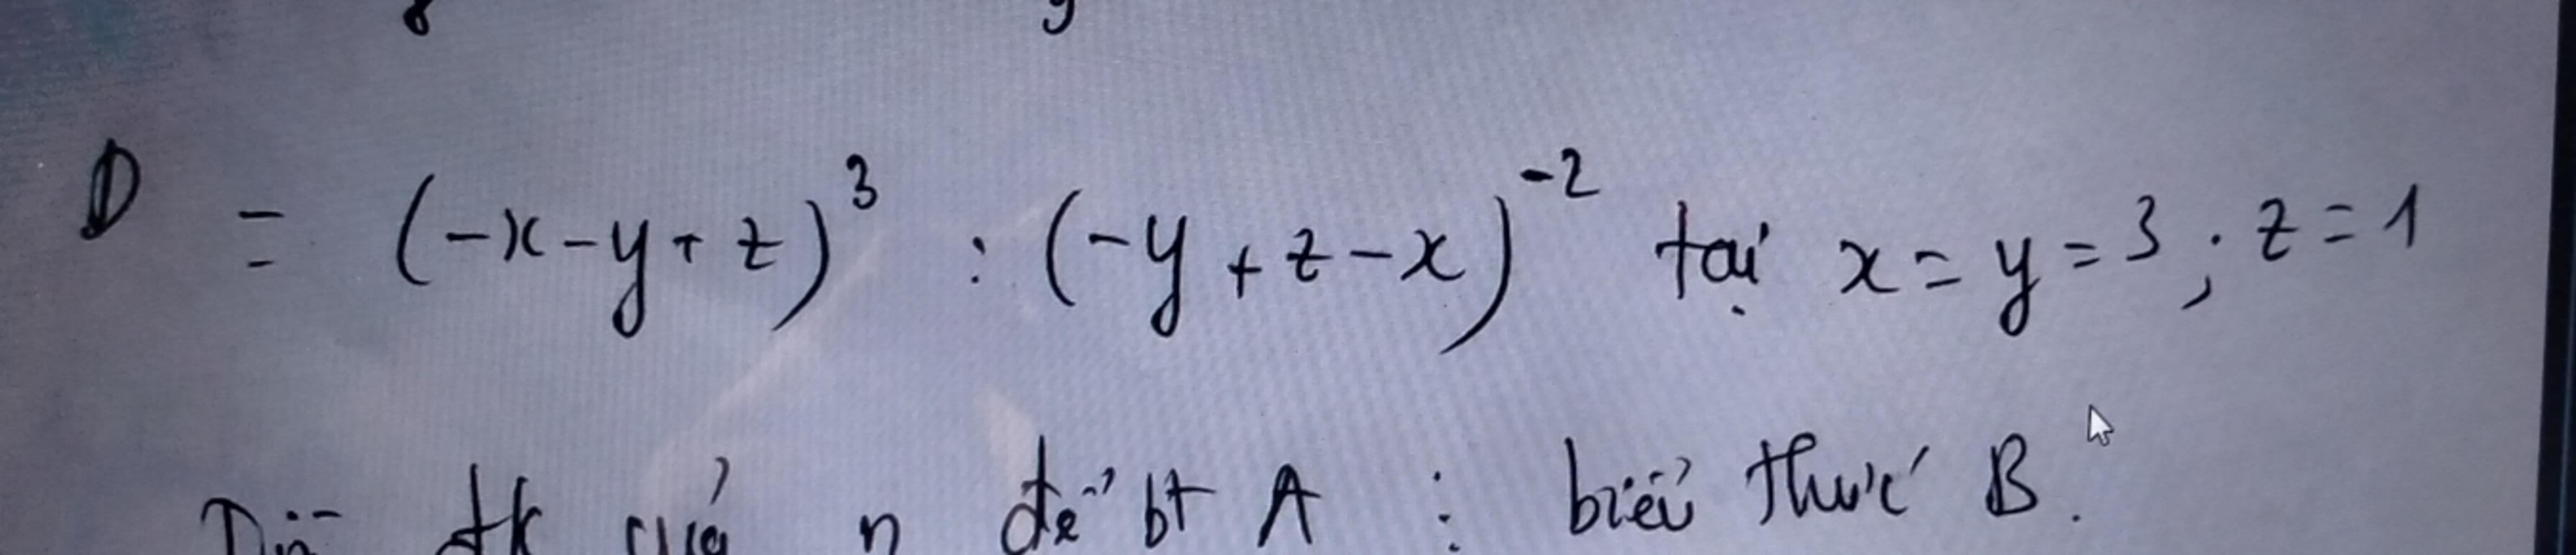 D = (-x-y+z)³ : (-y+z-x)⁻² tại x = y = 3 ; z = 1
đk của n để bt A : biểu thức B.